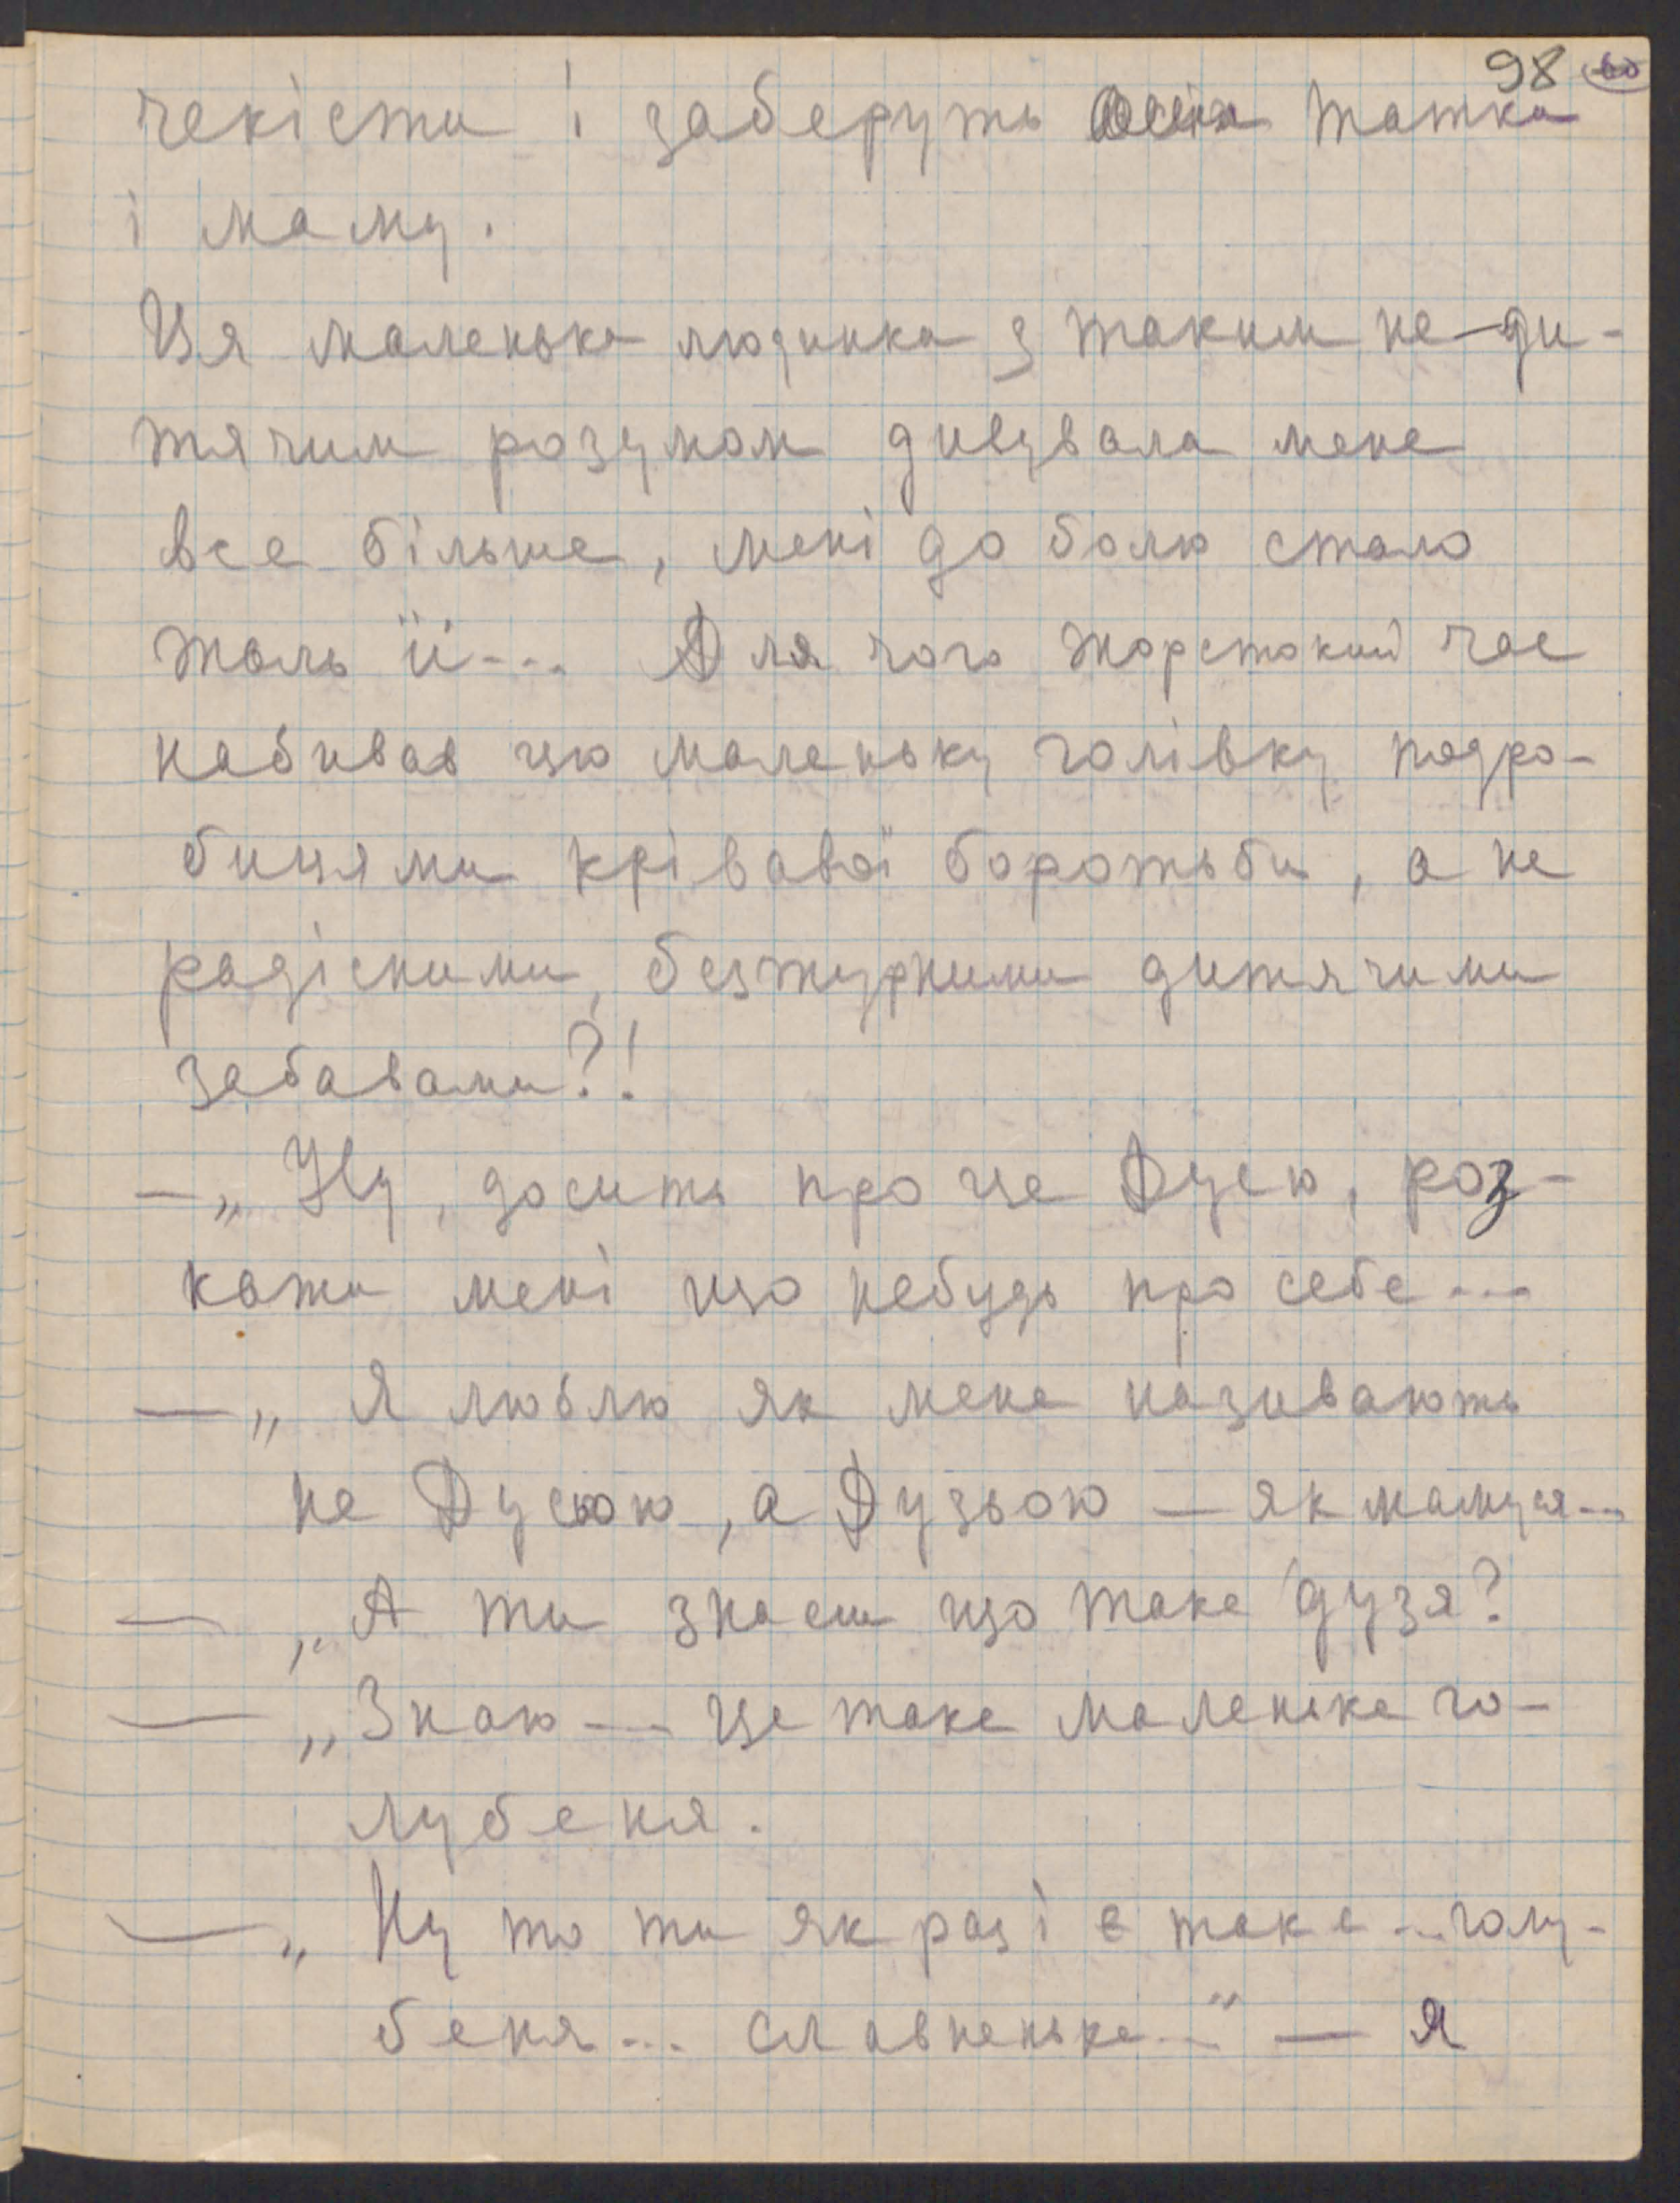 98
чекісти і заберуть татка
і маму.
Ця маленька людинка з таким не-ди-
тячим розумом дивувала мене
все більше, мені до болю стало
жаль її... Для чого жорстокий час
набивав цю маленьку голівку подро-
бицями крівавої боротьби, а не
радісними, безжурними дитячими
забавами?!
— „Ну, досить про це Дусю, роз-
кажи мені що небудь про себе...
— „Я люблю як мене називають
не Дусьою, а Дузьою — як мамуся...
— „А ти знаєш що таке дузя?
— „Знаю... Це таке маленьке го-
лубеня.
— „Ну то ти як раз і є таке... голу-
беня... славненьке..." — Я